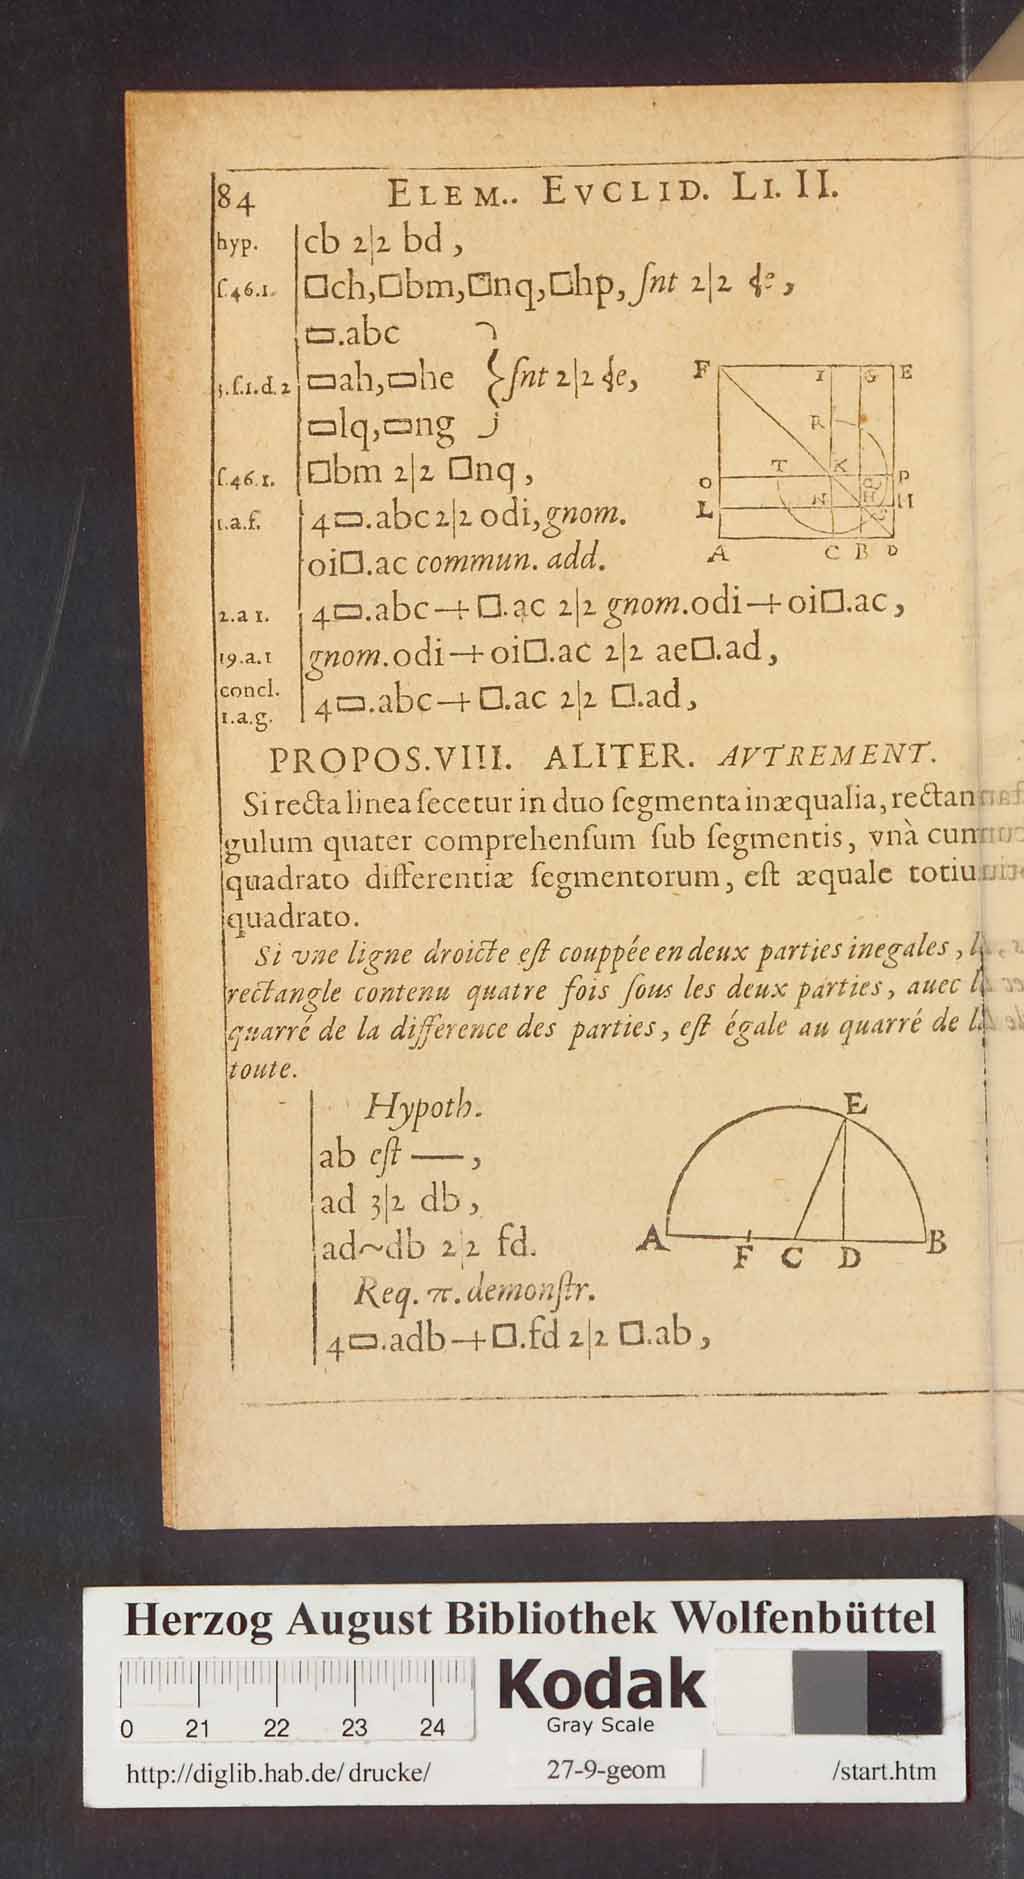 84 ELEM.. EVCLID. LI. II.
hyp. cb 2|2 bd ,
ſ.46.1. □ch, □bm, □nq, □hp, ſnt 2|2 ɖe ,
▭.abc
3.ſ.1.d.2 ▭ah, ▭he } ſnt 2|2 ɖe,
▭lq, ▭ng
ſ.46.1. □bm 2|2 □nq ,
1.a.f. 4▭.abc 2|2 odi, gnom.
oi□.ac commun. add.
2.a 1. 4▭.abc + □.ac 2|2 gnom.odi + oi□.ac ,
19.a.1 gnom.odi + oi□.ac 2|2 ae□.ad ,
concl.
1.a.g. 4▭.abc + □.ac 2|2 □.ad ,
F I G E
R
T K P
O Q
L N H M
A C B D
PROPOS.VIII. ALITER. AVTREMENT.
Si recta linea ſecetur in duo ſegmenta inæqualia, rectan
gulum quater comprehenſum ſub ſegmentis, vnà cum
quadrato differentiæ ſegmentorum, eſt æquale totiu
quadrato.
Si vne ligne droicte eſt couppée en deux parties inegales , l
rectangle contenu quatre fois ſous les deux parties, auec l
quarré de la difference des parties, eſt égale au quarré de l
toute.
Hypoth.
ab eſt — ,
ad 3|2 db ,
ad~db 2|2 fd.
Req. π. demonſtr.
4▭.adb + □.fd 2|2 □.ab ,
E
A F C D B
Herzog August Bibliothek Wolfenbüttel
Kodak
Gray Scale
0 21 22 23 24
http://diglib.hab.de/drucke/ 27-9-geom /start.htm